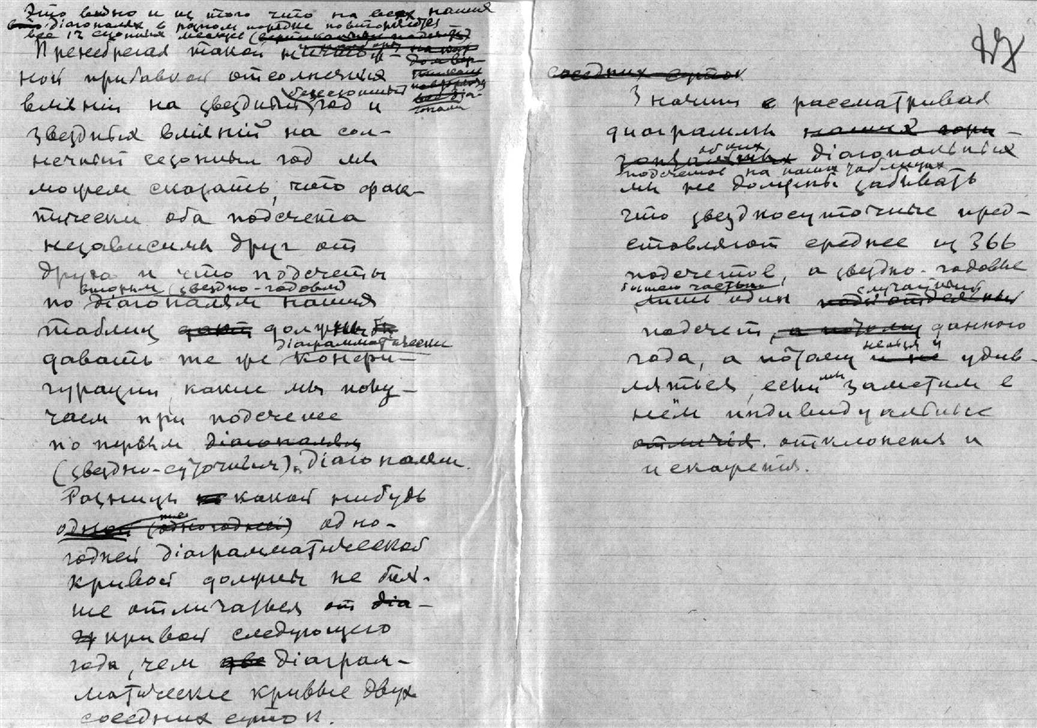 Это видно и из того что на всех наших
діагоналях в разном порядке повторяются
все 12 месяцев
Пренебрегая такой
ной прибавкой от солнечных
вліяний на звездный год и
звездных вліяний на сол-
нечный сезонный год мы
можем сказать, что фак-
тически оба подсчета
независимы друг от
друга и что подсчеты
вторым (звездно-годовым)
по діагоналям наших
таблиц должны бы
діаграмматически
давать те же конфи-
гурации какие мы полу-
чаем при подсчете
по первым діагоналям
(звездно-суточным) діагоналям.
Разница какой нибудь
одной (одногодней) одно-
годней діаграмматической
кривой должна не боль-
ше отличаться от діа-
кривой следующего
года, чем две діаграм-
матические кривые двух
соседних суток.
47
соседних суток
Значит рассматривая
диаграммы наших гори-
зонтальных обоих діагональных
подсчетов на наших таблицах
мы не должны забывать
что звездносуточные пред-
ставляют среднее из 366
подсчетов, а звездно-годовые
лишь один случайный
подсчет, а потому данного
года, а потому нельзя и удив-
ляться, если мы заметим в
нём индивидуальные
отличія отклонения и
искажения.